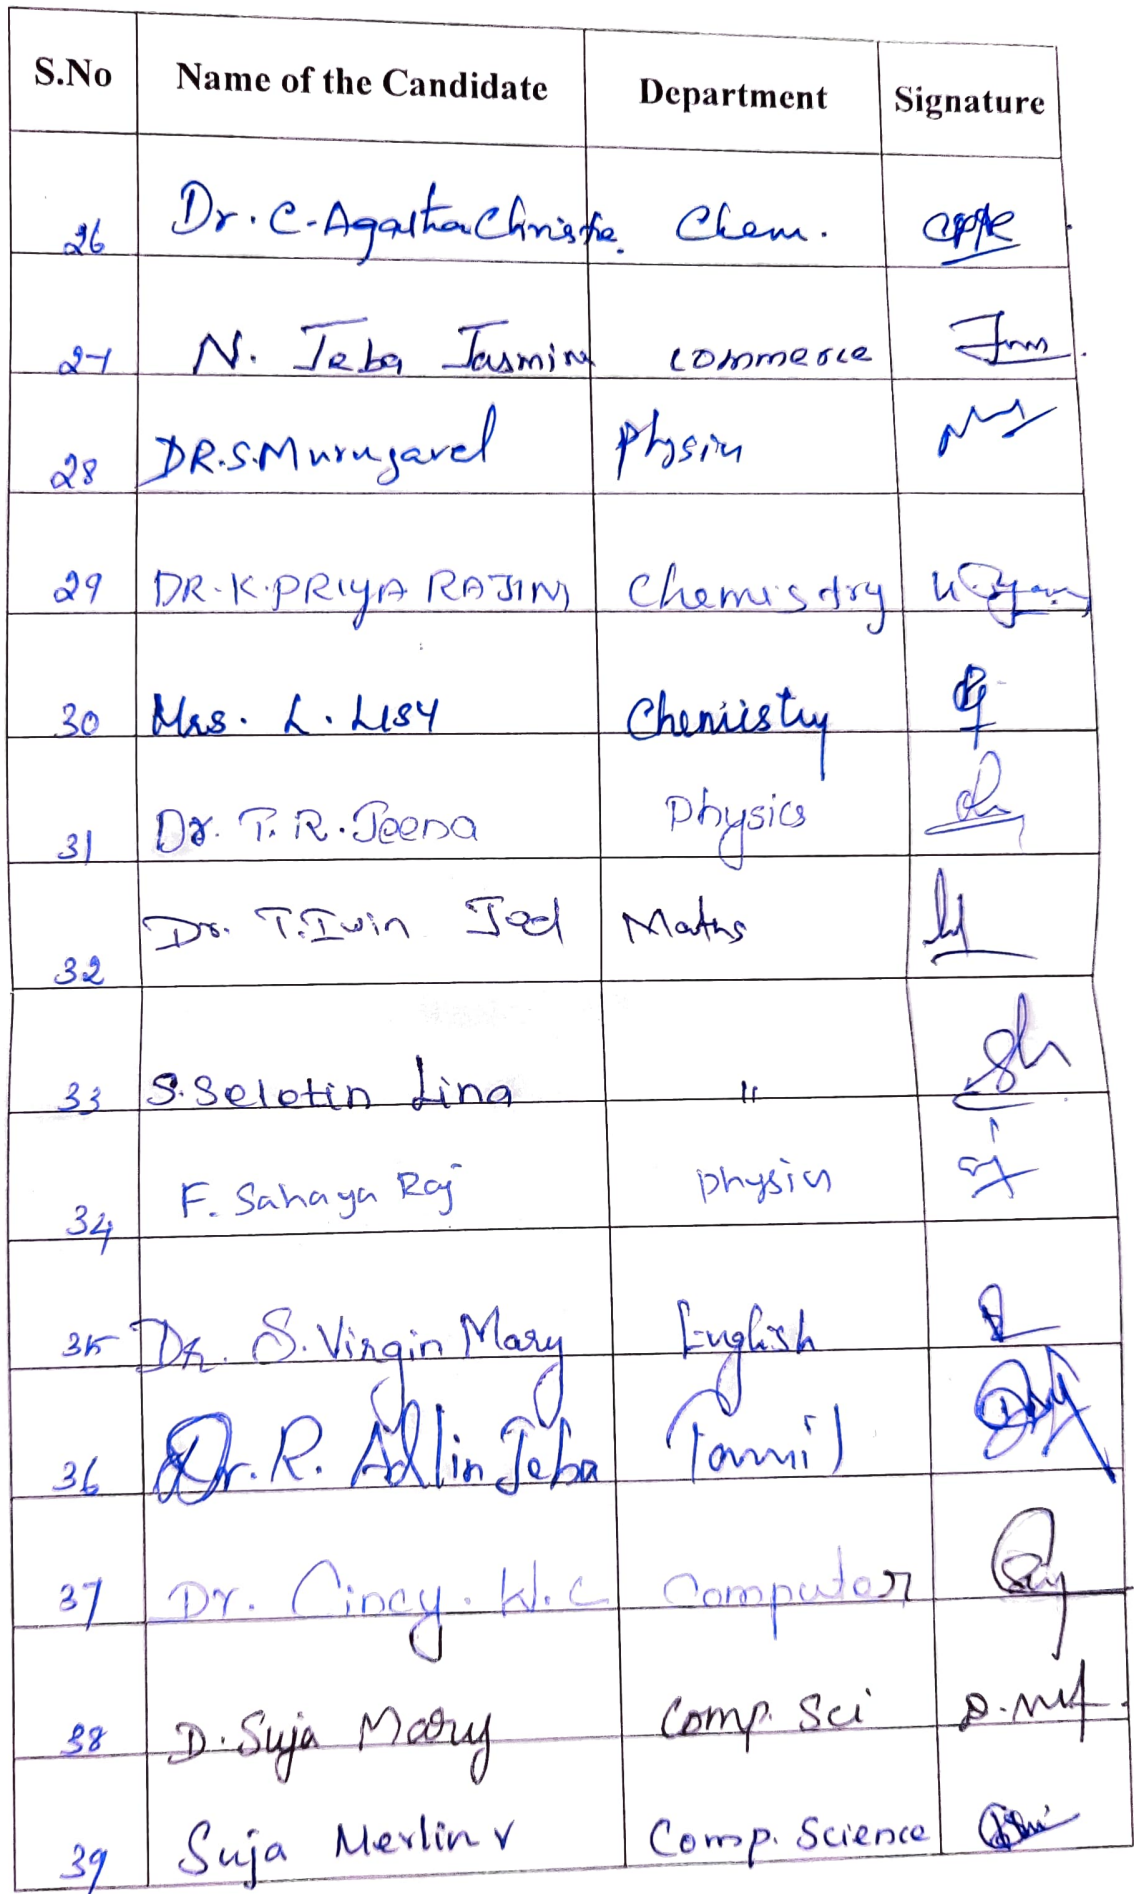 S.No Name of the Candidate Department Signature
26 Dr. C. Agatha Christie Chem.
27 N. Jeba Jasmine commerce
28 DR.S.Murugavel Physics
29 DR.K.PRIYA RAJINI Chemistry
30 Mrs. L. LISY Chemistry
31 Dr. T.R.Jeena Physics
32 Dr. T. Iwin Joel Maths
33 S.Selotin Lina "
34 F. Sahaya Raj physics
35 Dr. S. Virgin Mary English
36 Dr. R. Adlin Jeba Tamil
37 Dr. Cincy. W.C Computer
38 D. Suja Mary Comp. Sci
39 Suja Merlin V Comp. Science